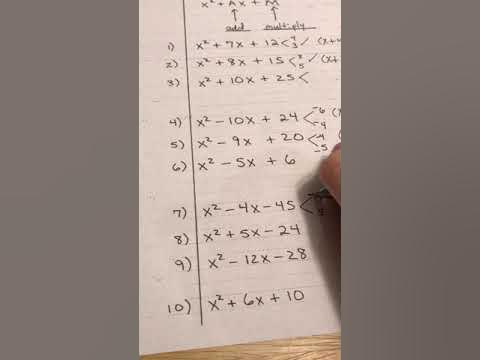 x² + Ax + M
add multiply
1) x² + 7x + 12 < 4 3 ✓ (x+4
2) x² + 8x + 15 < 3 5 ✓ (x+
3) x² + 10x + 25 <
4) x² - 10x + 24 < -6 -4 (x
5) x² - 9x + 20 < -4 -5 (
6) x² - 5x + 6
7) x² - 4x - 45 < 5
8) x² + 5x - 24
9) x² - 12x - 28
10) x² + 6x + 10